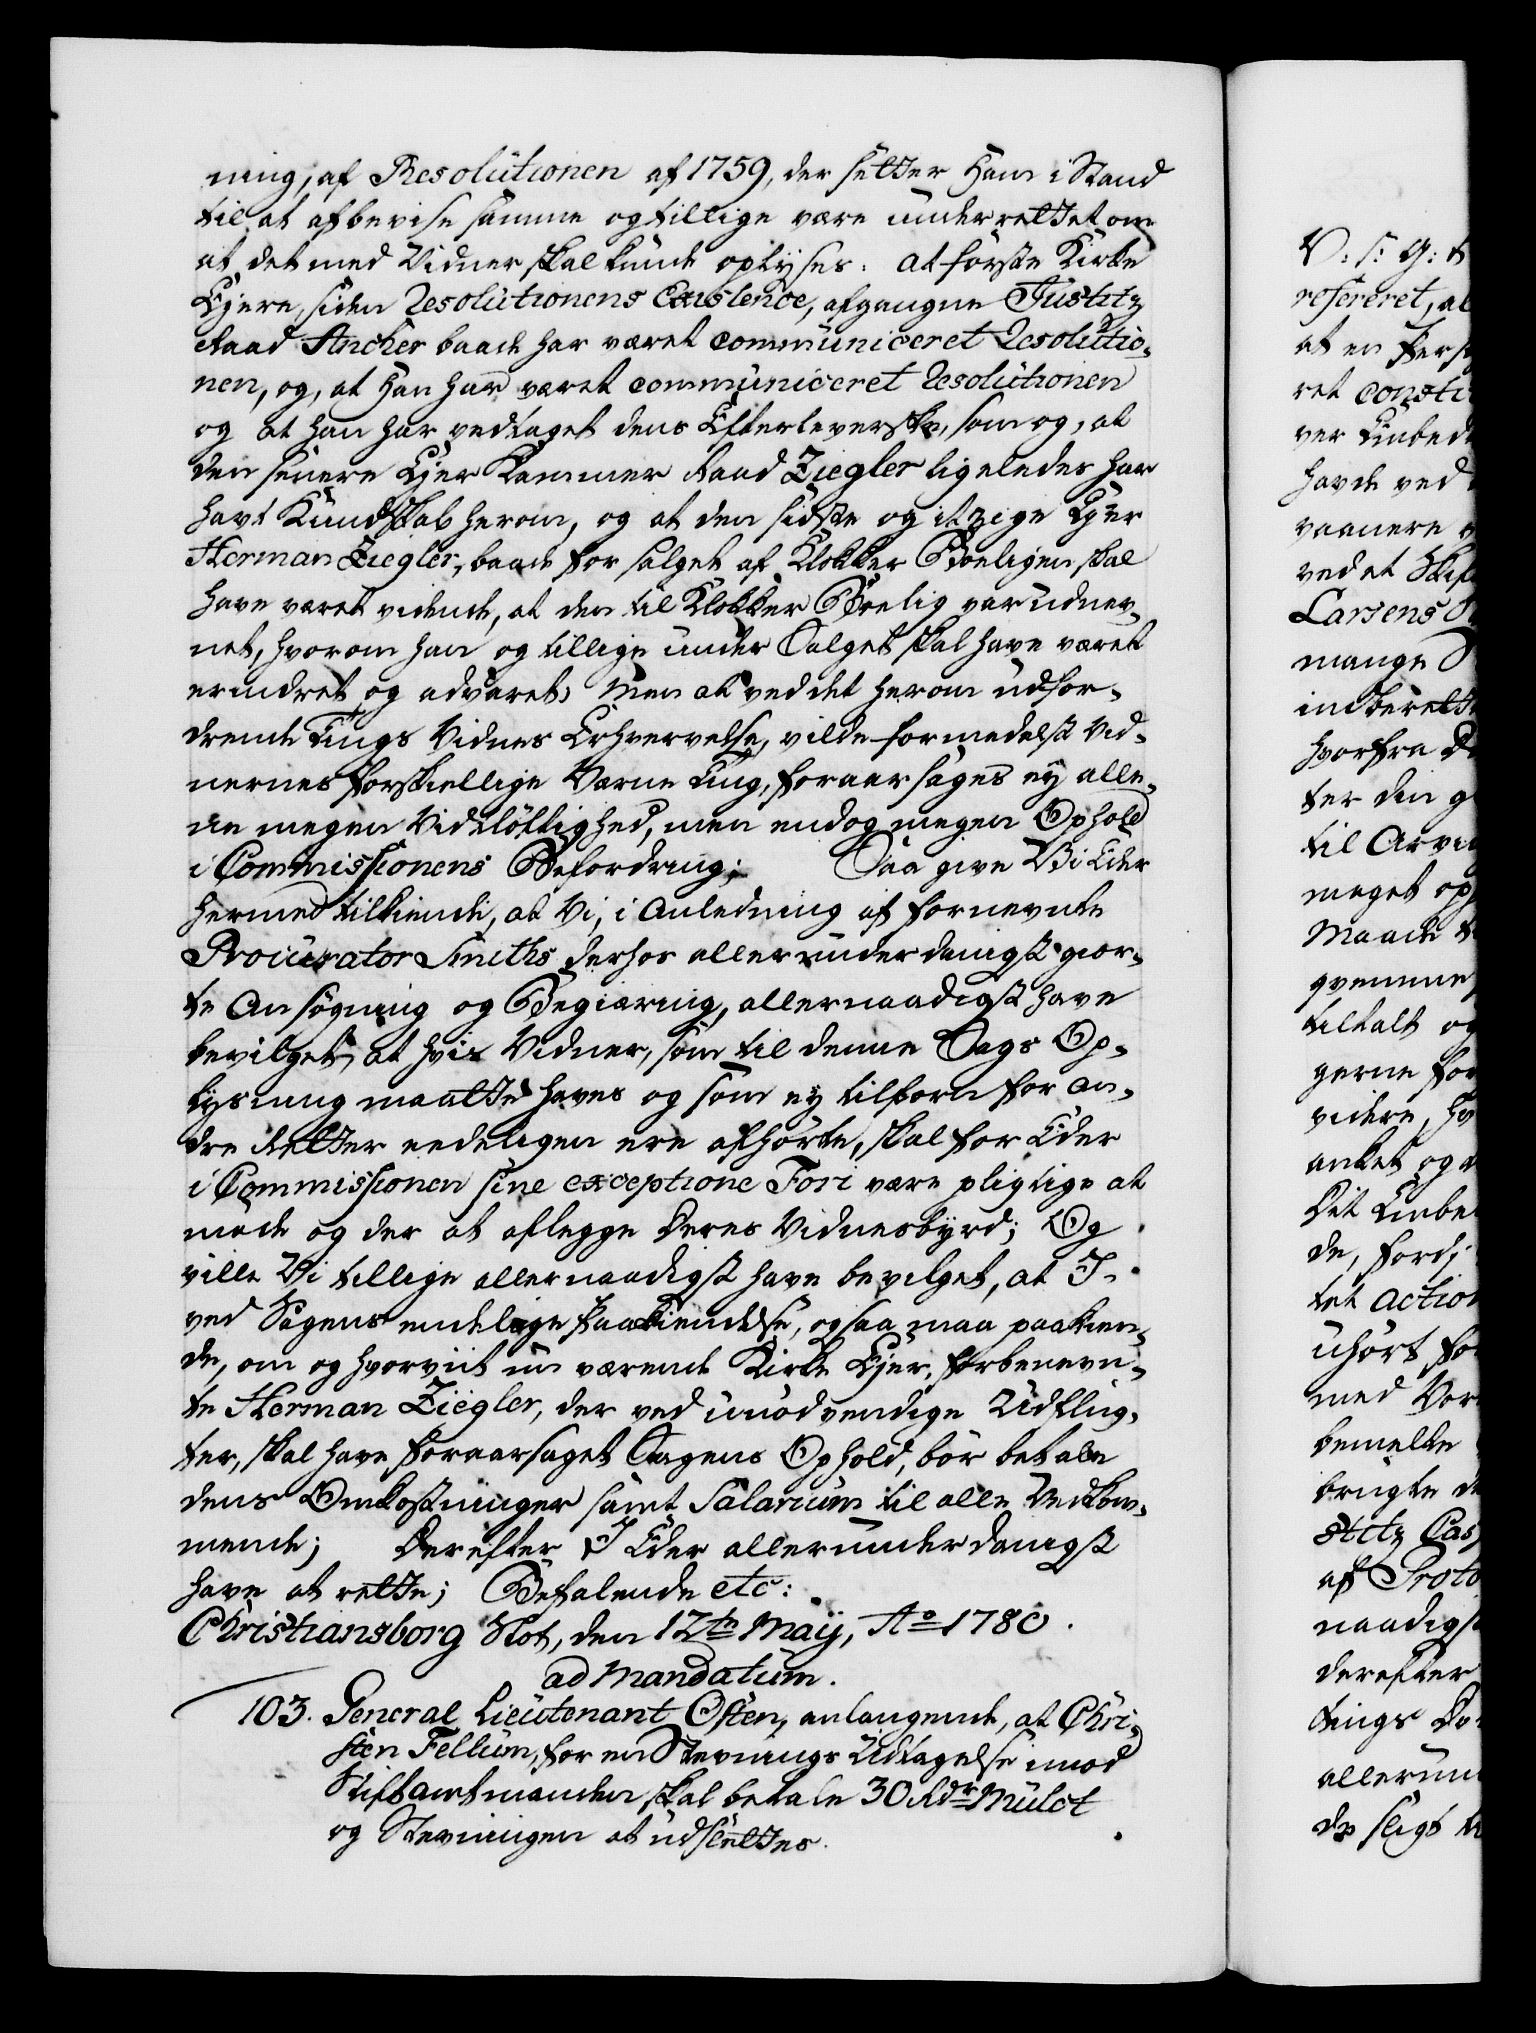 ning, af Resolutionen af 1759, der sætter ham i Stand
til at afbevise samme og tillige være underrettet om
at det med Vidner skal kunde oplyses: at første Kirke
Ejere, siden Resolutionens Existence, afgangne Justitz
Raad Ancher baade har været communiceret Resolutio-
nen, og, at han har været communiceret Resolutionen
og at han har vedtaget dens Efterleverske, som og, at
den senere Ejer Kammer Raad Ziegler ligeledes har
havt Kundskab herom, og at den sidste og itzige Ejer
Herman Ziegler, baade før salget af Klokker Boeligen skal
have været vidende, at den til Klokker Boelig var udnev-
net, hvorom han og tillige under Salget skal have været
erindret og advaret; Men at ved det herom udfor-
drende Tings Vidnes Erhvervelse, vilde formedelst Vid-
nernes forskiellige Værne Ting, foraarsages ey alle-
ne megen Vidtløftighed, men endog megen Ophold
i Commissionens Befordring; Saa give Vi Eder
hermed tilkiende, at Vi, i Anledning af fornevnte
Procurator Smiths derhos allerunderdanigst gior-
te Ansøgning og Begiæring, allernaadigst have
bevilget, at hvis Vidner, som til denne Sags Op-
lysning maatte haves og som ey tilforn for an-
dre Retter eedeligen ere afhørte, skal for Eder
i Commissionen sine exceptione Fori være pligtige at
møde og der at aflegge deres Vidnesbyrd; Og
ville Vi tillige allernaadigst have bevilget, at I
ved Sagens endelige Paakiendelse, ogsaa maa paakien-
de, om og hvorviit nu værende Kirke Ejer, forbenevn-
te Herman Ziegler, der ved unødvendige Udflug-
ter, skal have foraarsaget Sagens Ophold, bør betale
dens Omkostninger samt Salarium til alle Vedkom-
mende; Derefter I Eder allerunderdanigst
have at rette; Befalende etc:
Christiansborg Slot, den 12te Maÿ, Ao 1780.
ad Mandatum.
103. General Lieutenant Osten, anlangende, at Chri-
sten Fellum, for en Stevnings Udtagelse imod
Stiftamtmanden, skal betale 30 Rdr Mulct
og Stevningen at udslettes.
V: s: G: t
refereret, al
at en Pers
ret consti
ver Embed
havde ved
vaanere
ved et Skif
Larsens
mange
indberett
hvorfra
ter din g
til Arvi
meget op
Maade
qvemme
tiltalt og
gerne for
videre, hv
anket og
Dit Embe
de, fordj
tet Action
uhørt for
med Vor
bemelte
brugte
stitz Cas
af Proto
naadigst
derefter
tings Do
allerun
de sligt